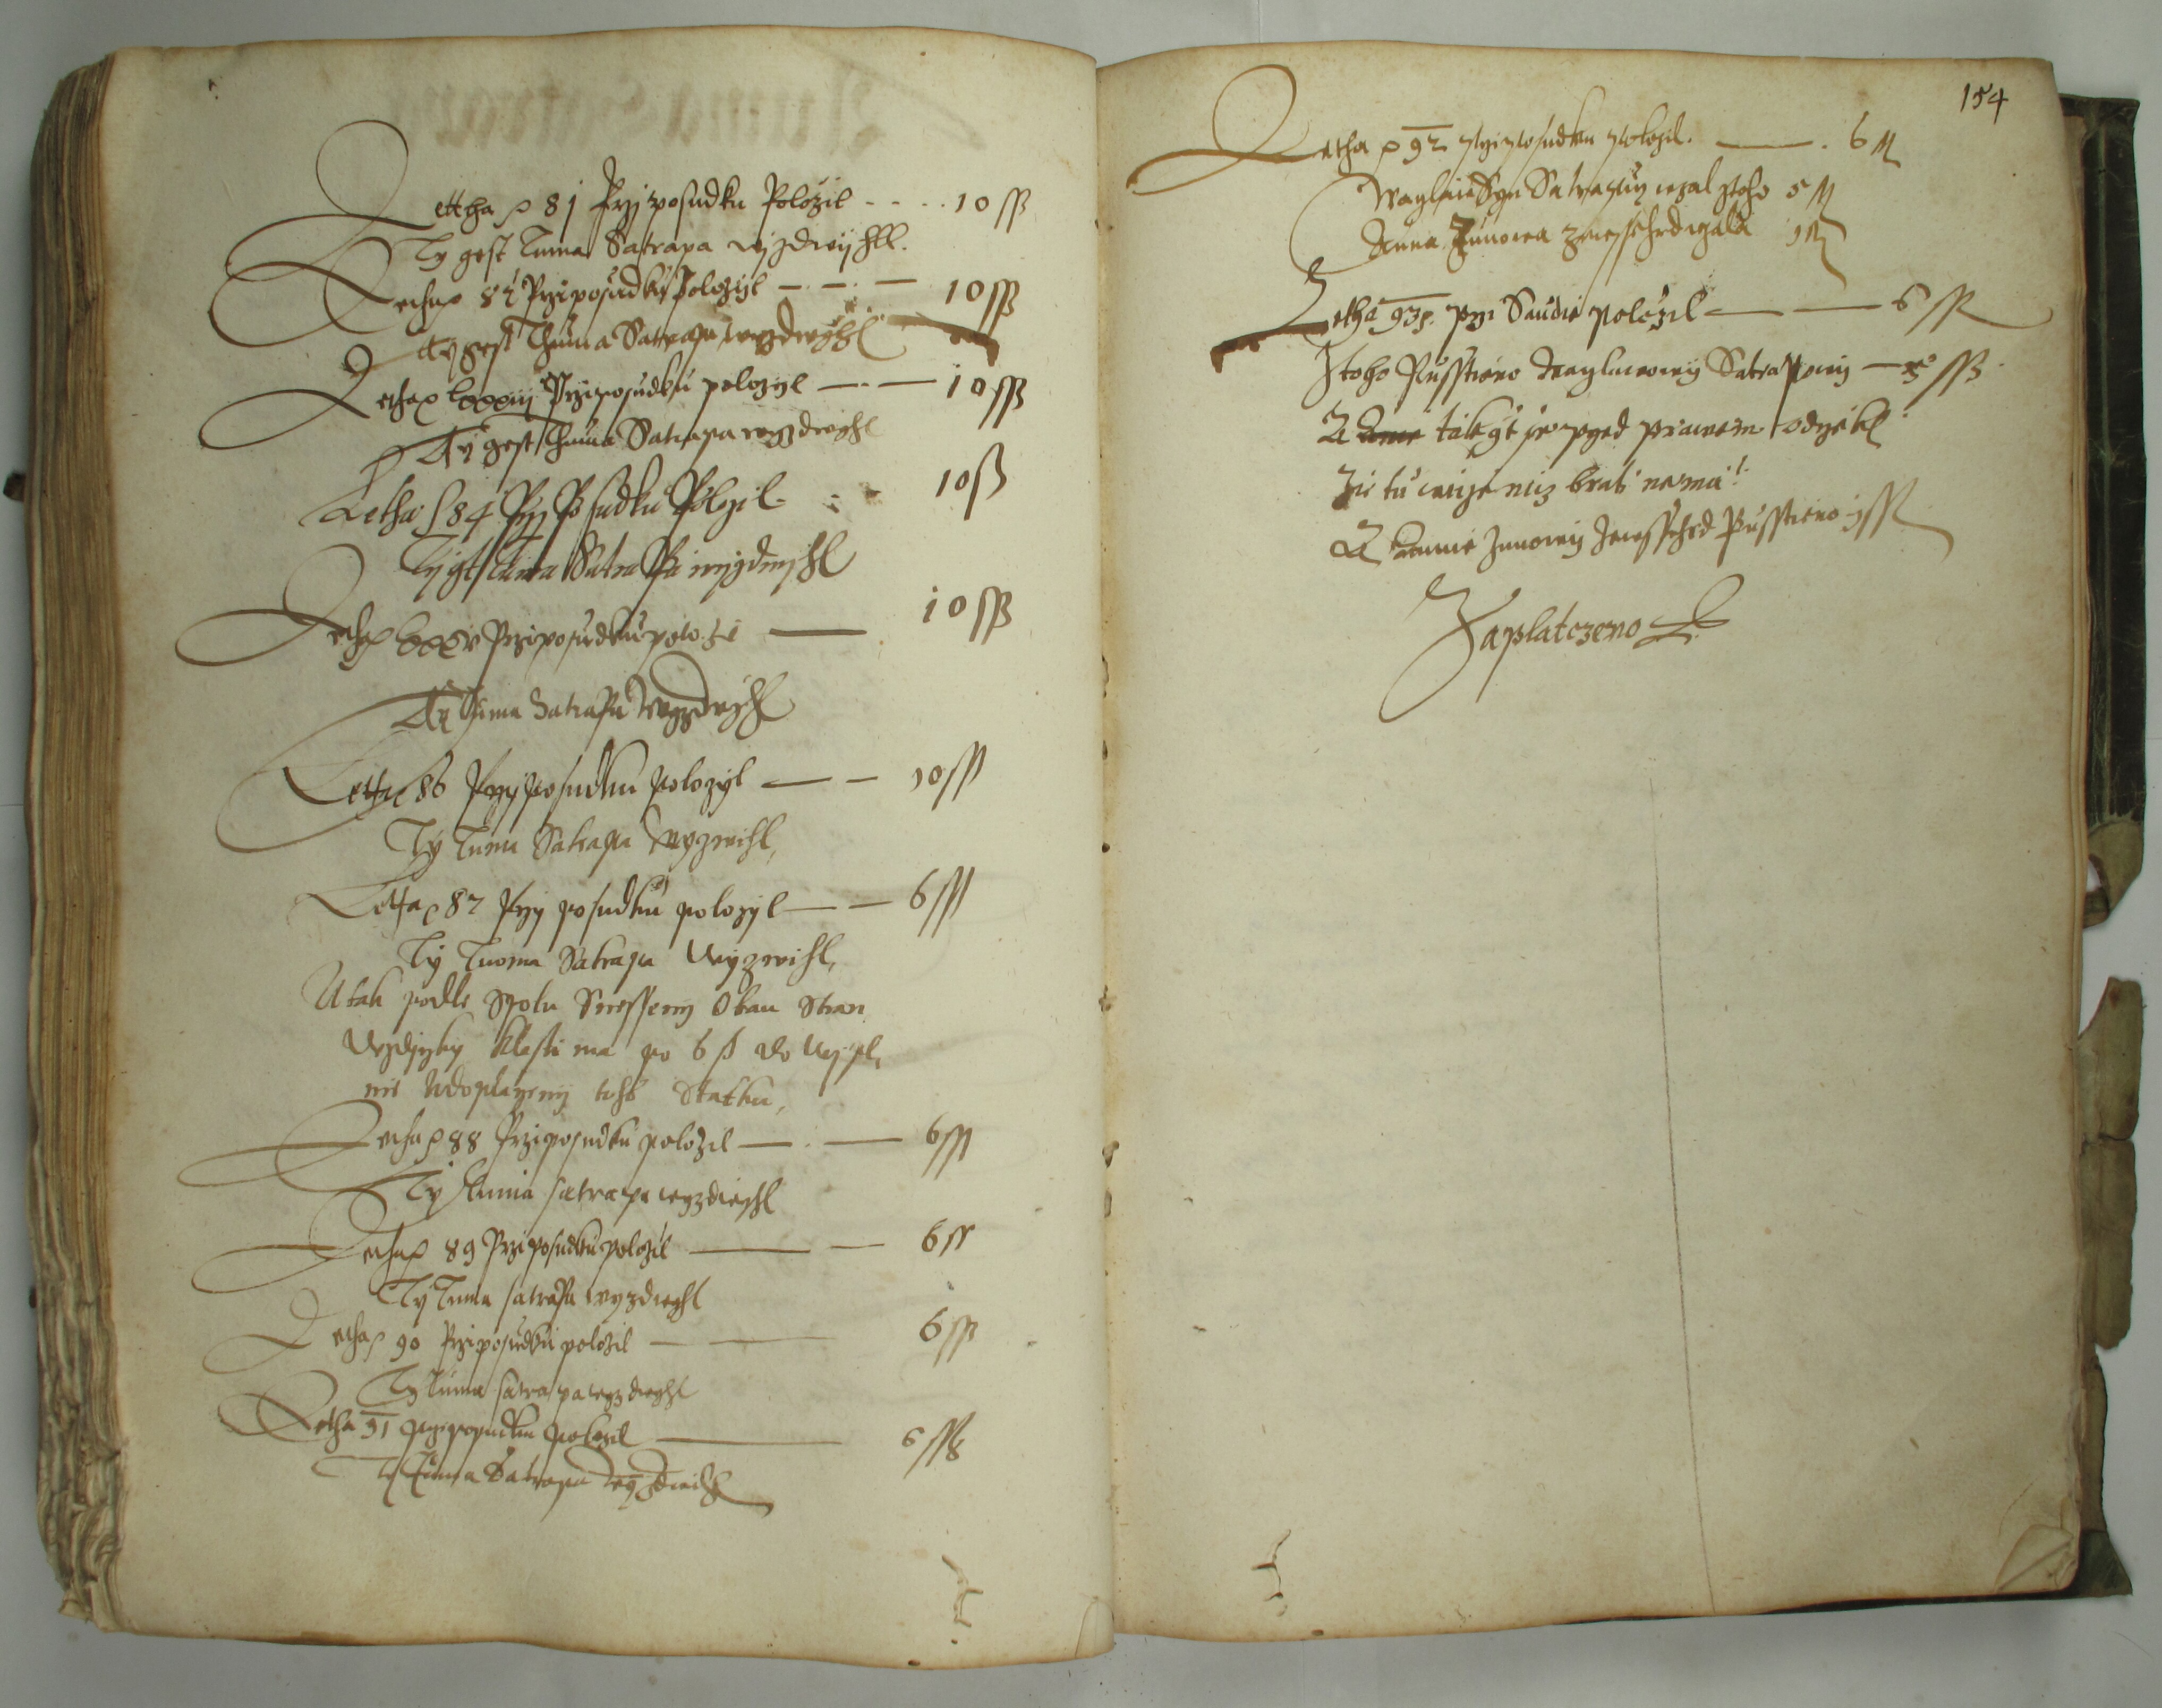 Lettha p 81 Przi posudku Polozil - - - - 10 ss
Ty gest Tuma Satrapa wyzdwyhl.
Letha p 82 Przi posudku Polozyl — — — 10 ss
Ty gest Thuma Satrapa wyzdwyhl
Letha p lxxxiij Przi posudku polozyl — — 10 ss
Ty gest Thuma Satrapa wyzdwyhl
Letha p 84 Przy Posudku Polozil 10 ß
Ty gt Tuma Satrapa wyzdwyhl
Letha p lxxxv Przi posudku polozil — 10 ss
Ty Tuma Satrapa wyzdwyhl
Letha 86 Przy posudku polozyl — — 10 ss
Ty Tuma Satrapa wyzwihl,
Letha p 87 Przy posudku polozyl — — 6 ss
Ty Tuoma Satrapa wyzwihl,
A tak podle Spolu Snesseny Obau Stran
Wzdyczky klasti ma po 6 ß do wypl,
nie toho Statku,
Letha p 88 Przi posudku polozil — . — 6 ss
Ty Tuma satrapa wyzdwyhl
Letha p 89 Przi posudku polozil — — 6 ss
Ty Tuma satrapa wyzdwihl
Letha p 90 Przi posudku polozil — — 6 ss
Ty Tuma satrapa wyzdwihl
Letha 91 przi posudku polozil — 6 ss
Ty Tuma Satrapa wyzdwihl
154
Letha p 92 przi posudku polozil. — . 6 ss
Waglaw Syn Satrapuy wzal z toho 5 ss
Anna Zunowa
Letha 93 p. przi Saudie polozil — — 6 ss
Z toho Pusstieno Waglawowy Satrapowy — 5 ss
A takze se przed prawem odrzekl
Zie tu wicze nicz brati nema:
A Annie Zunowy Pusstieno 1 ss
Zaplatczeno